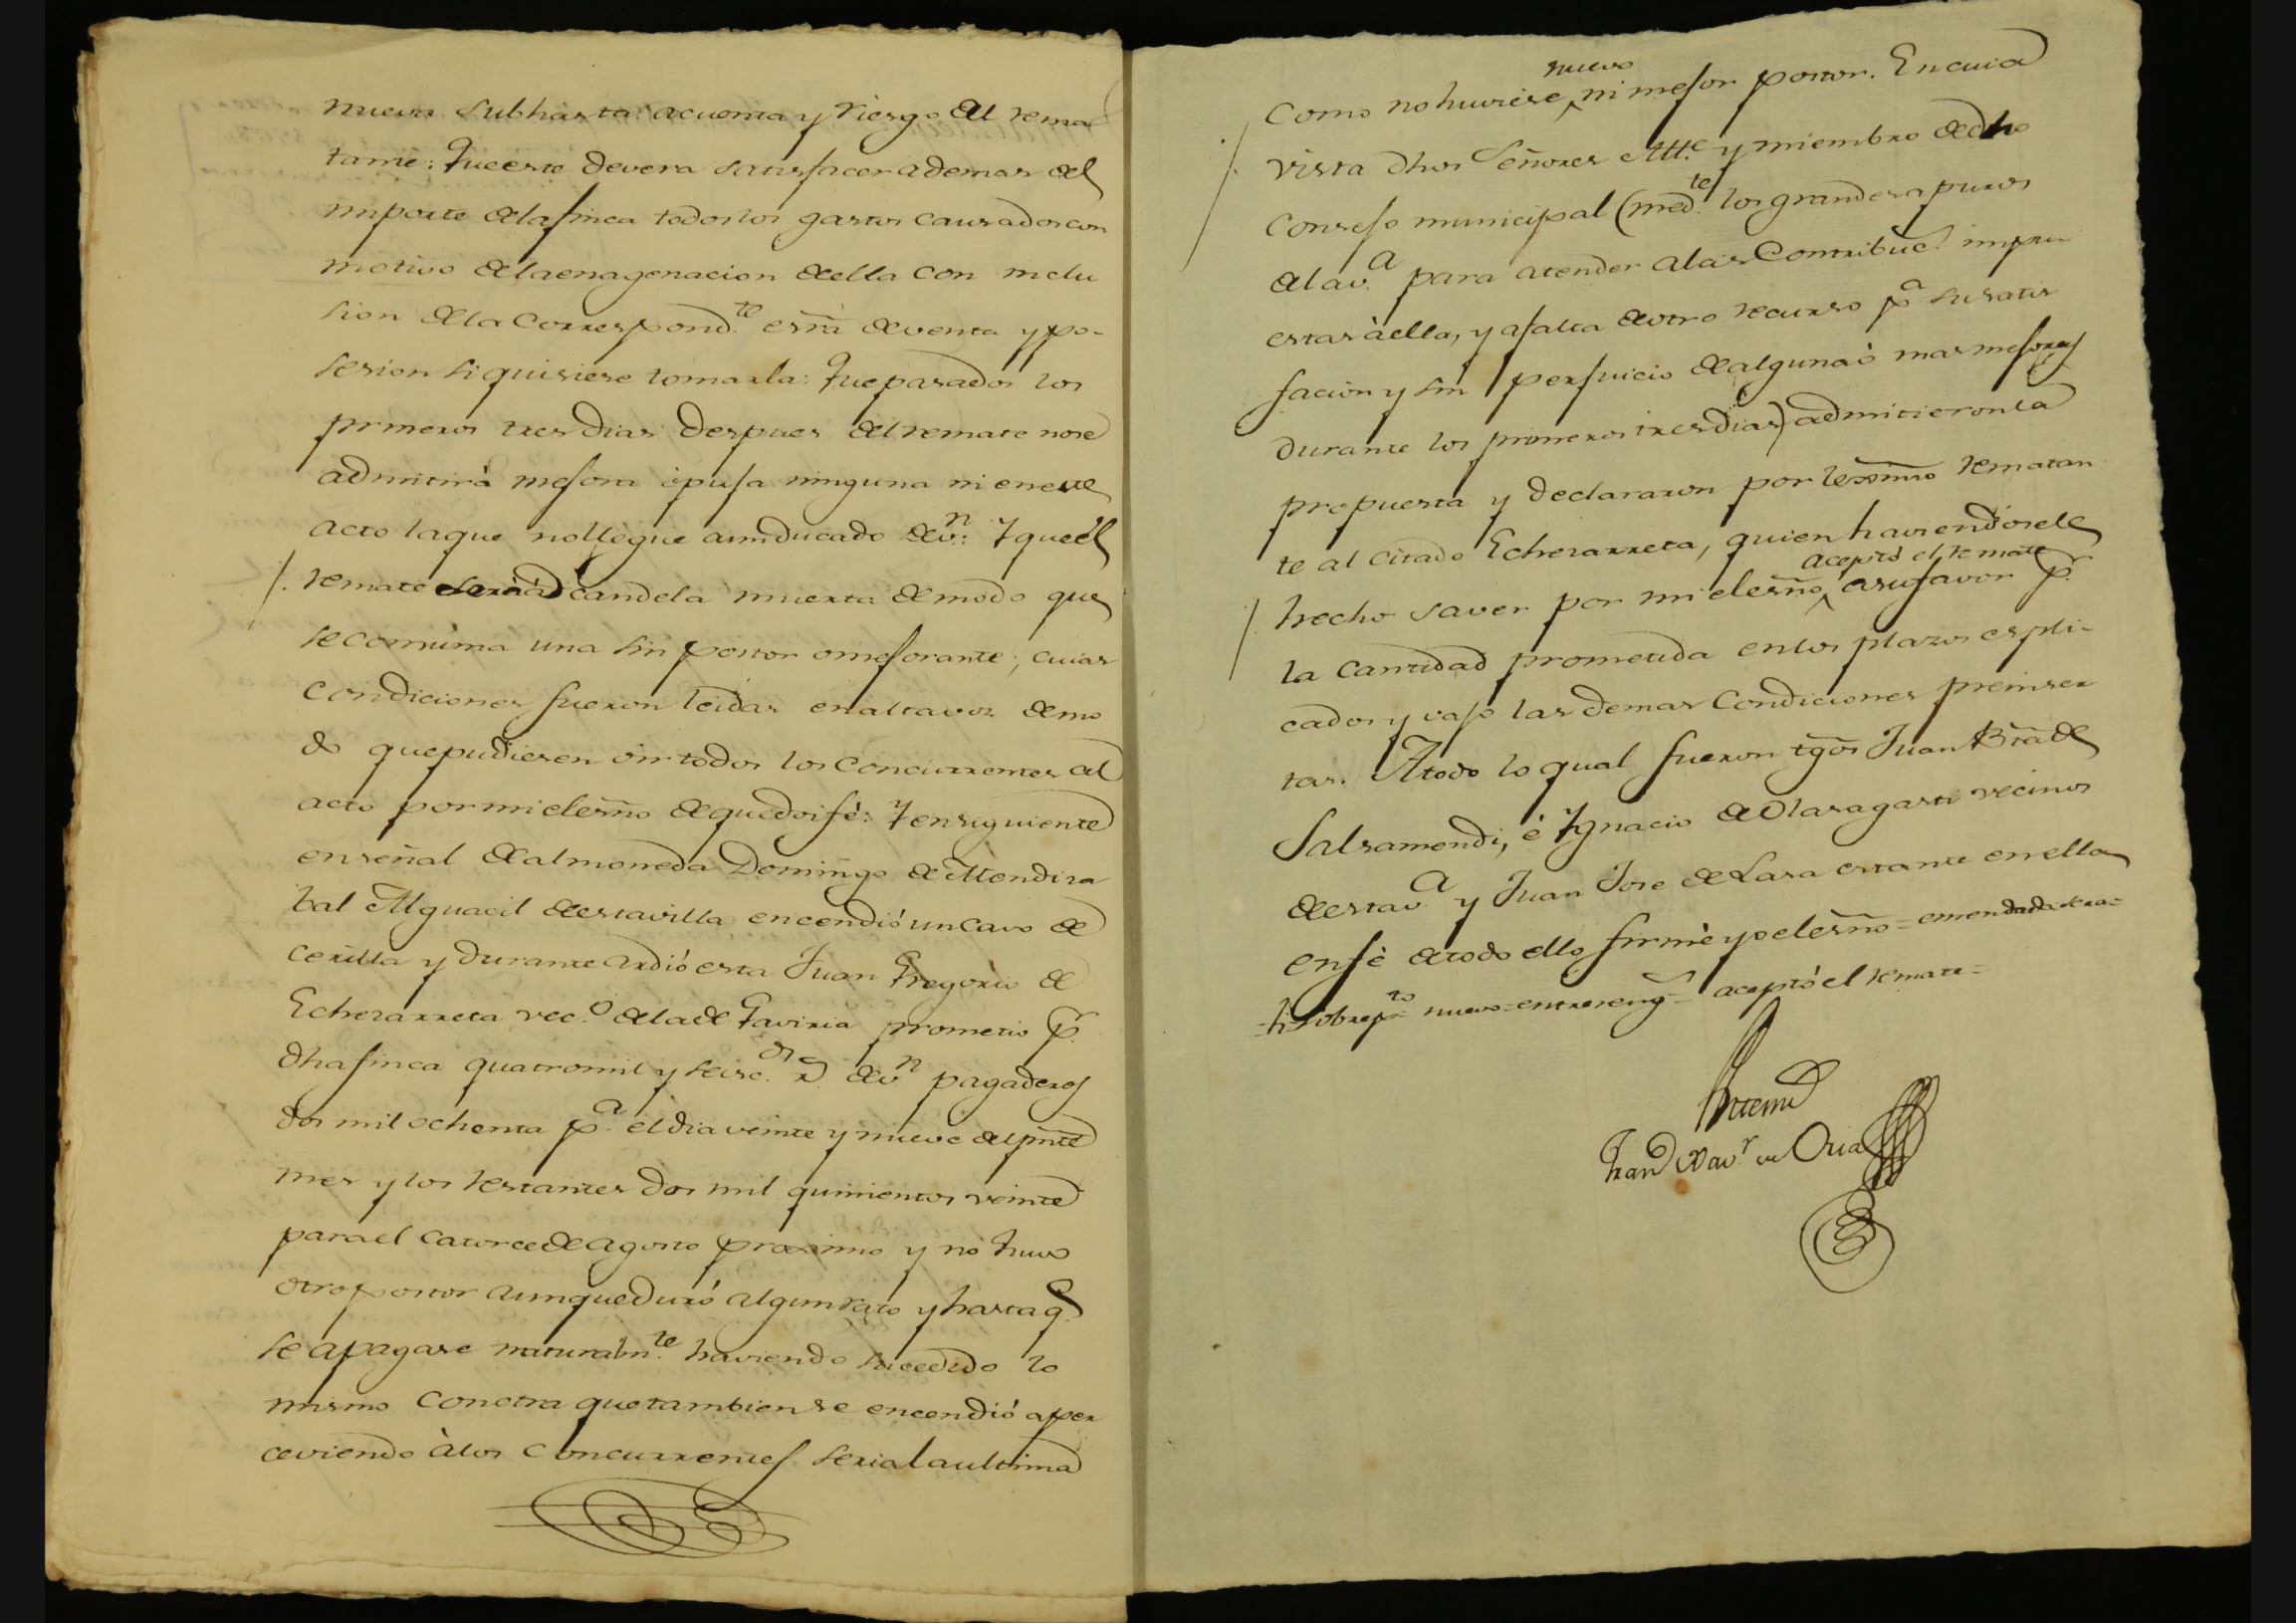 nueva subhasta acuenta y riesgo del rema
tante: Que este devera satisfacer ademas del
importe dela finca todos los gastos causados con
motivo dela enagenacion de ella con inclu
sion dela correspond.te esrra de venta y po-
sesion si quisiere tomarla: Que pasados los
primeros tres dias despues del remate no se
admitirá mejora ó puja ninguna ni en este
acto la que no llegue a un ducado de v.n: Y que él
/. remate será á candela muerta de modo que
se consuma una sin postor o mejorante; cuias
condiciones fueron leidas en alta voz de mo
do que pudiesen oir todos los concurrentes al
acto por mi el esño de que doi fé: Y en siguiente
en señal de almoneda Domingo de Mendiza
bal Alguacil de esta villa encendió un cavo de
cerilla y durante ardió esta Juan Gregorio de
Echezarreta vec.o dela de Gaviria prometio p.r
dha finca quatro mil y seisc.os r.s de v.n pagaderos
dos mil ochenta p.a el dia veinte y nueve del pnte
mes y los restantes dos mil quinientos veinte
para el catorce de agosto proximo y no huvo
otro postor aunque duró algun rato y hasta q.e
se apagase naturalm.te haviendo sucedido lo
mismo con otra que tambien se encendió aper
ceviendo à los concurrentes seria la ultima
como no huviese nuevo ni mejor postor. En cuia
vista dhos Señores Alt.e y miembro de dho
consejo municipal (med.te los grandes apuros
de la v.a para atender alas Contribuc.s impu
estas à ella, y a falta de otro recurso p.a su satis
facion y sin perjuicio de alguna ó mas mejoras
durante los primeros tres dias) admitieron la
propuesta y declararon por lexmo rematan
te al citado Echezarreta, quien haviendosele
hecho saver por mi el esño aceptó el remate a su favor p.r
la cantidad prometida en los plazos espli-
cados y vajo las demas condiciones preinser
tas. A todo lo qual fueron tgos Juan Bta de
Salsamendi, é Ygnacio de Olasagasti vecinos
de esta v.a y Juan Jose de Lasa estante en ella
en fé de todo ello firmé yo el esño = emendada = sera =
= h = sobrep.to nuevo = entrereng.s = aceptó el remate =
Ante mi
Fran.co Xav.r de Oria